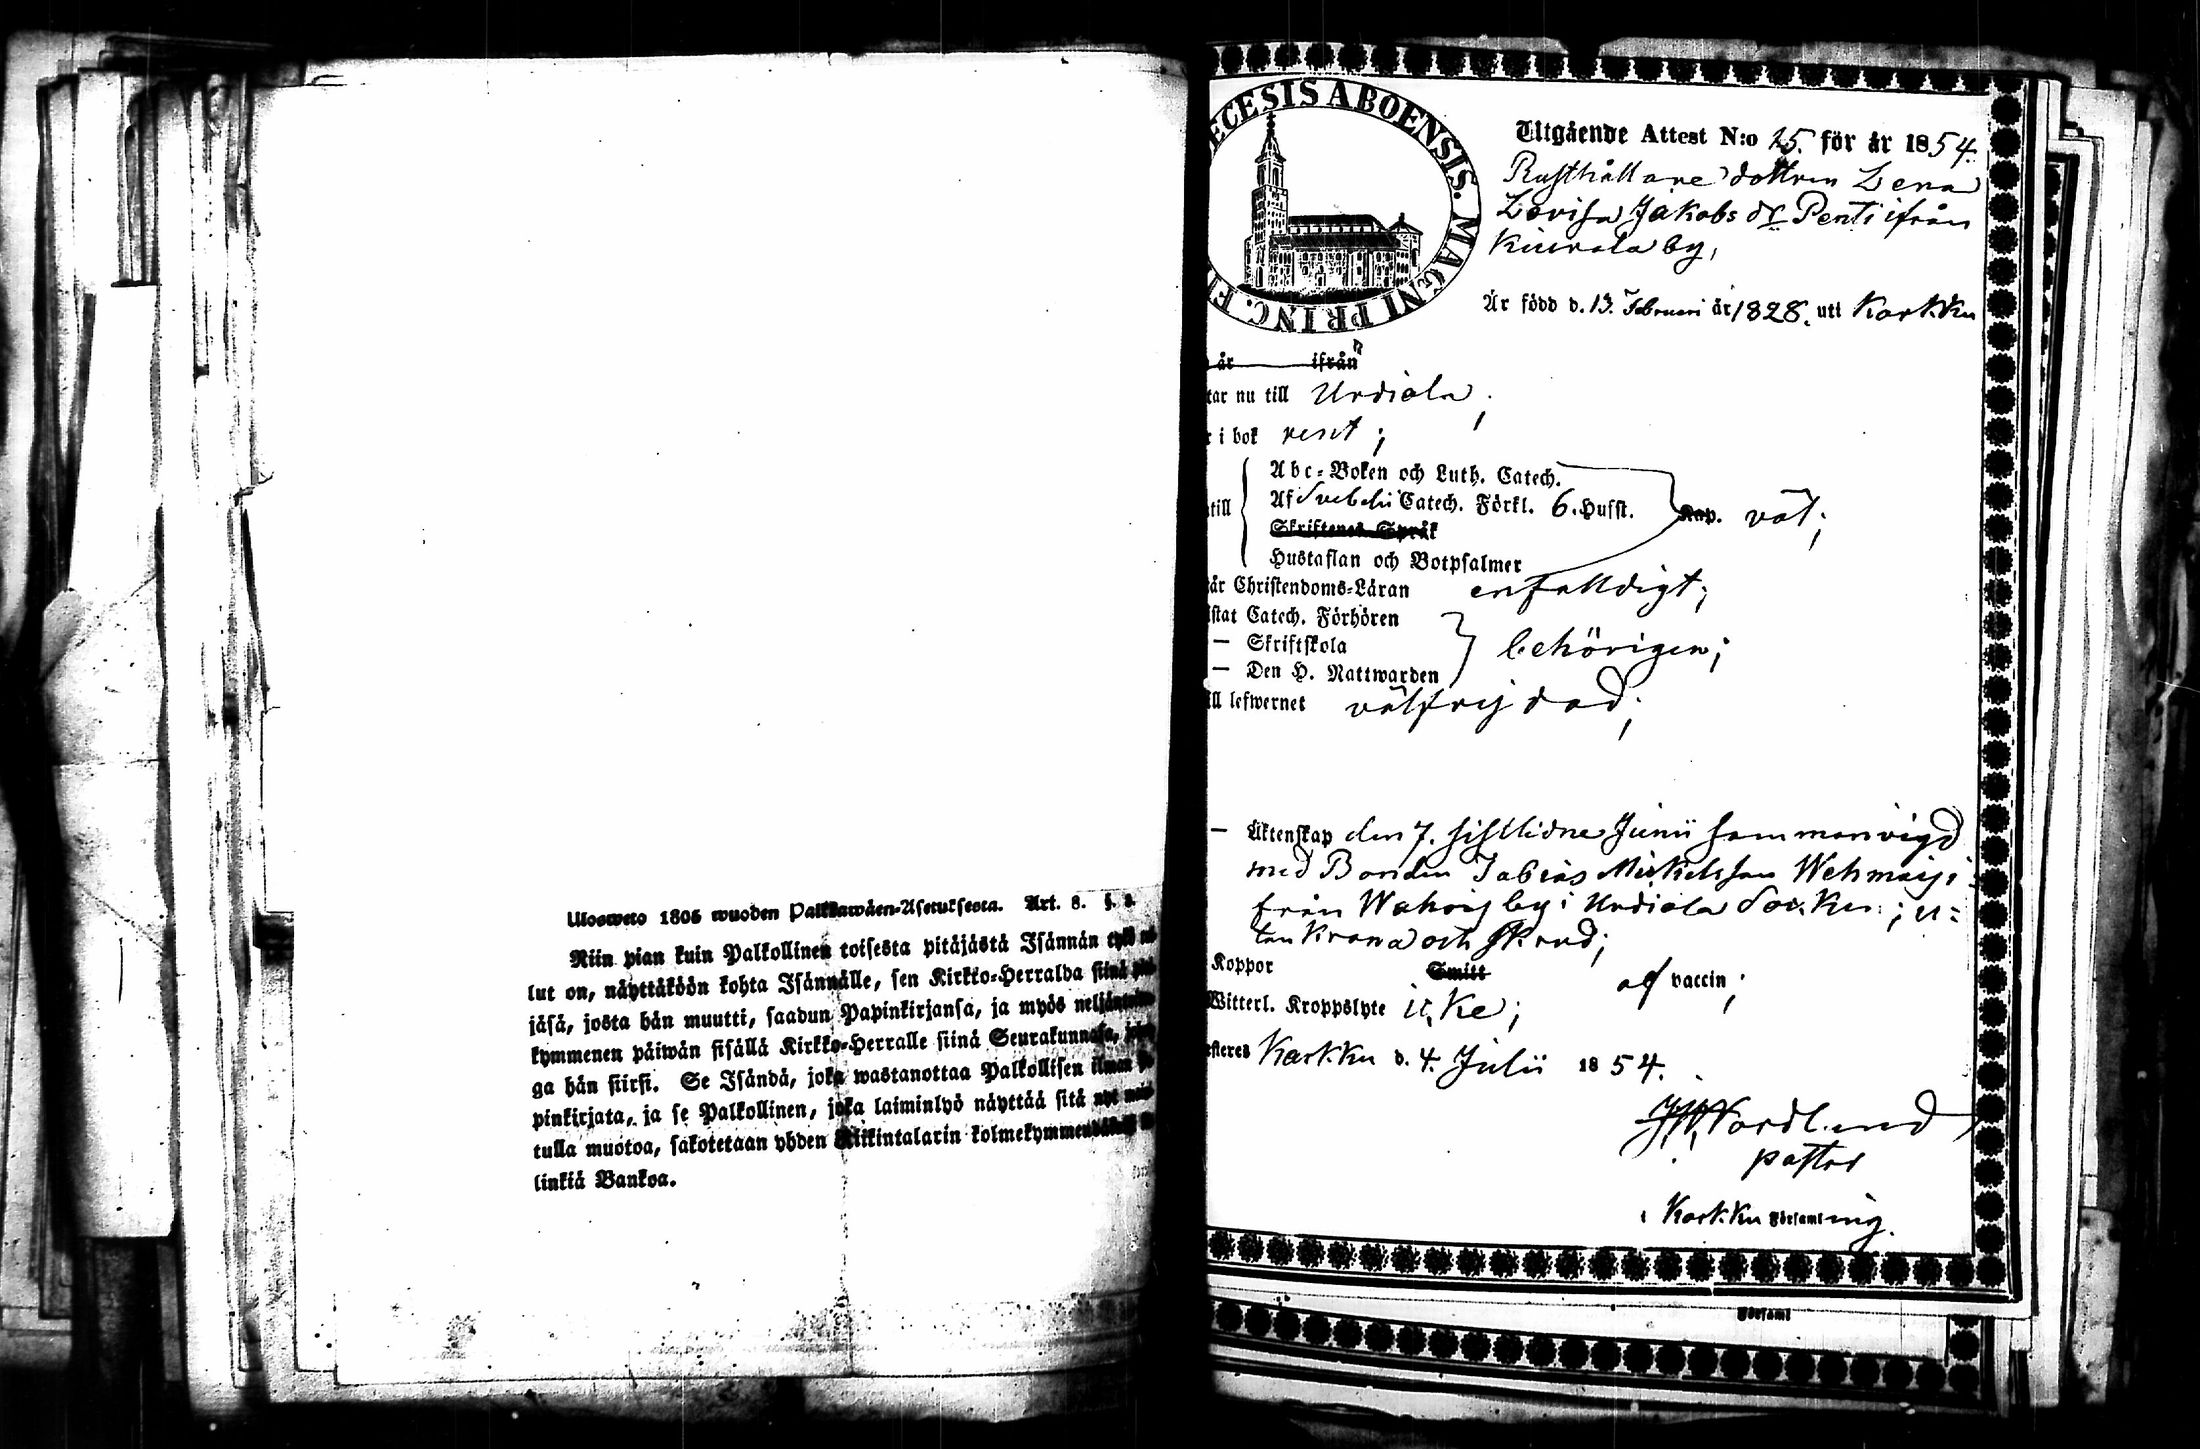 Uloswето 1805 wuoden Palkkawäen-Asetuksesta. Art. 8. §.
Niin pian kuin Palkollinen toisesta pitäjästä Isännän
lut on, näyttäköön kohta Isännälle, sen Kirkko-Herralda siinä
jäsä, josta hän muutti, saadun Papinkirjansa, ja myös
kymmenen päiwän sisällä Kirkko-Herralle siinä Seurakunnasa,
ga hän siirsi. Se Isändä, joka wastanottaa Palkollisen ilman
pinkirjata, ja se Palkollinen, joka laiminlyö näyttää sitä
tulla muotoa, sakotetaan yhden Riikintalarin
linkiä Bankoa.
ECESIS ABOENSIS. MAGNI PRINC. F
Utgående Attest N:o 15. för år 1854.
Rusthållare dottren Lena
Lovisa Jakobs dr Penti ifrån
Kiurala by,
Är född d. 13. Februari år 1828. uti Karkku
år ifrån
tar nu till Urdiala;
r i bok rent;
Abc-Boken och Luth. Catech.
till Af Svebelii Catech. Förkl. 6. Hufst. Kap. väl;
Skriftenes Språk
Hustaflan och Botpsalmer
tår Christendoms-Läran enfalldigt;
istat Catech. Förhören
— Skriftskola behörigen;
— Den H. Nattwarden
ill lefwernet välfrejdad;
— Äktenskap den 7. sistlidne Junii sammanvigd
med Bonden Tobias Mickelsson Wehmaji
från Wahois by i Urdiala Socken; u-
tan krona och skrud;
Koppor Smitt af vaccin;
Witterl. Kroppslyte icke;
esteres Karkku d. 4. Julii 1854.
Nordlund
pastor
i Karkku Församling.
Församl